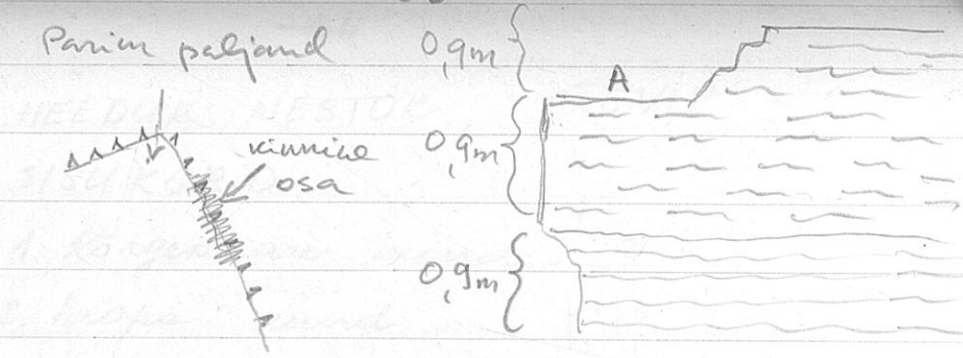 Parim paljand
0,9m
A
kinnine
osa
0,9m
0,9m